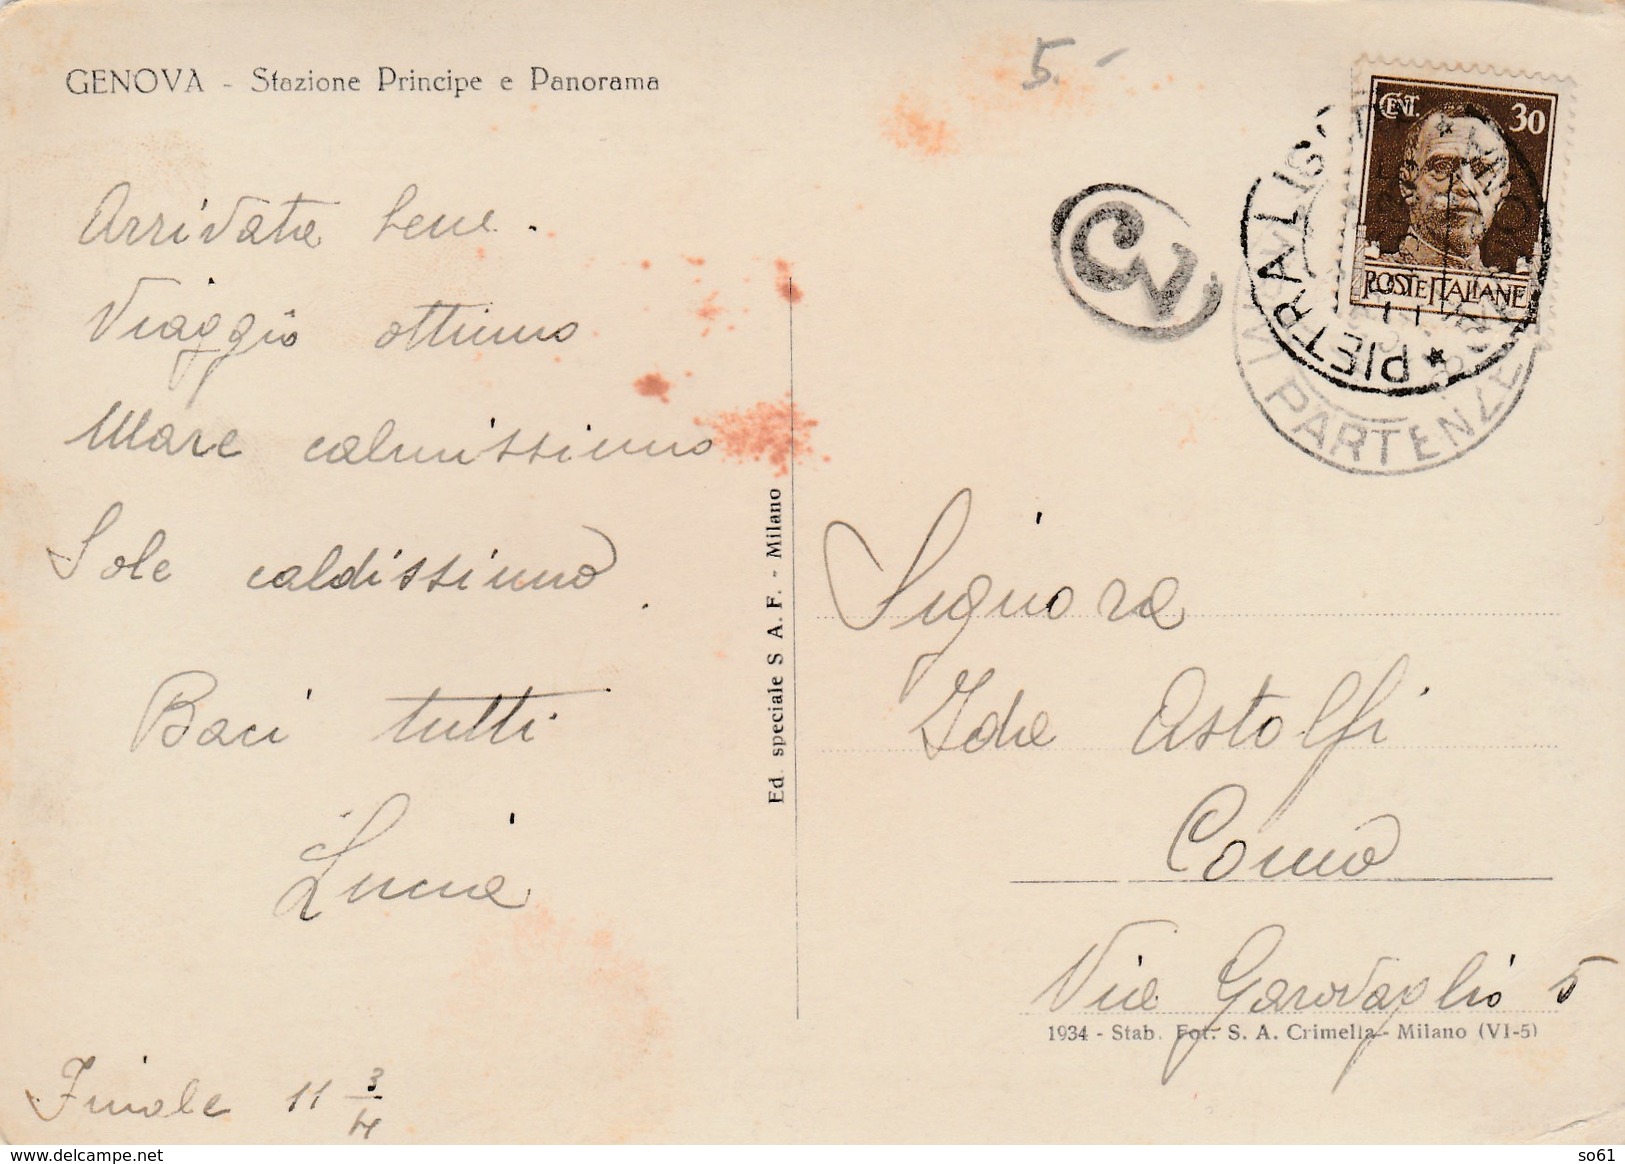 GENOVA - Stazione Principe e Panorama
5.-
Arrivata bene.
Viaggio ottimo
Mare calmissimo
Sole caldissimo.
Baci tutti
Lucia
Finale 11 3/4
Ed. speciale S. A. F. - Milano
CENT. 30
POSTE ITALIANE
PIETRALIG
PARTENZE
Signora
Ida Astolfi
Como
Via Garovaglio 5
1934 - Stab. Fot. S. A. Crimella - Milano (VI-5)
delcampe.net
so61